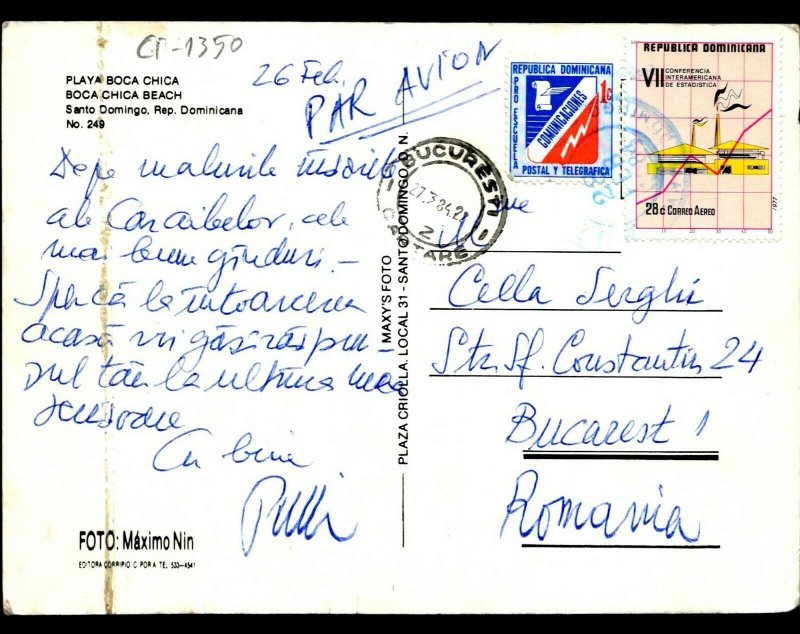 CT-1350
PLAYA BOCA CHICA
BOCA CHICA BEACH
Santo Domingo, Rep. Dominicana
No. 249
26 Feb.
PAR AVION
De pe malurile însorite
ale Caraibelor, cele
mai bune gânduri. –
Sper că la întoarcerea
acasă voi găsi răspun-
sul tău la ultima mea
scrisoare
Cu bine
FOTO: Máximo Nin
EDITORA CORRIPIO C POR A TE. 533-4541
MAXY'S FOTO
PLAZA CRIOLLA, LOCAL 31 - SANTO DOMINGO, R. N.
REPUBLICA DOMINICANA
1c
PRO ESCUELA
COMUNICACIONES
POSTAL Y TELEGRAFICA
REPUBLICA DOMINICANA
VII CONFERENCIA
INTERAMERICANA
DE ESTADISTICA
28c CORREO AEREO
1977
BUCUREȘTI
27.3.84.21
2
CARTARE
Mme
Cella Serghi
Str. Sf. Constantin 24
Bucarest 1
Romania